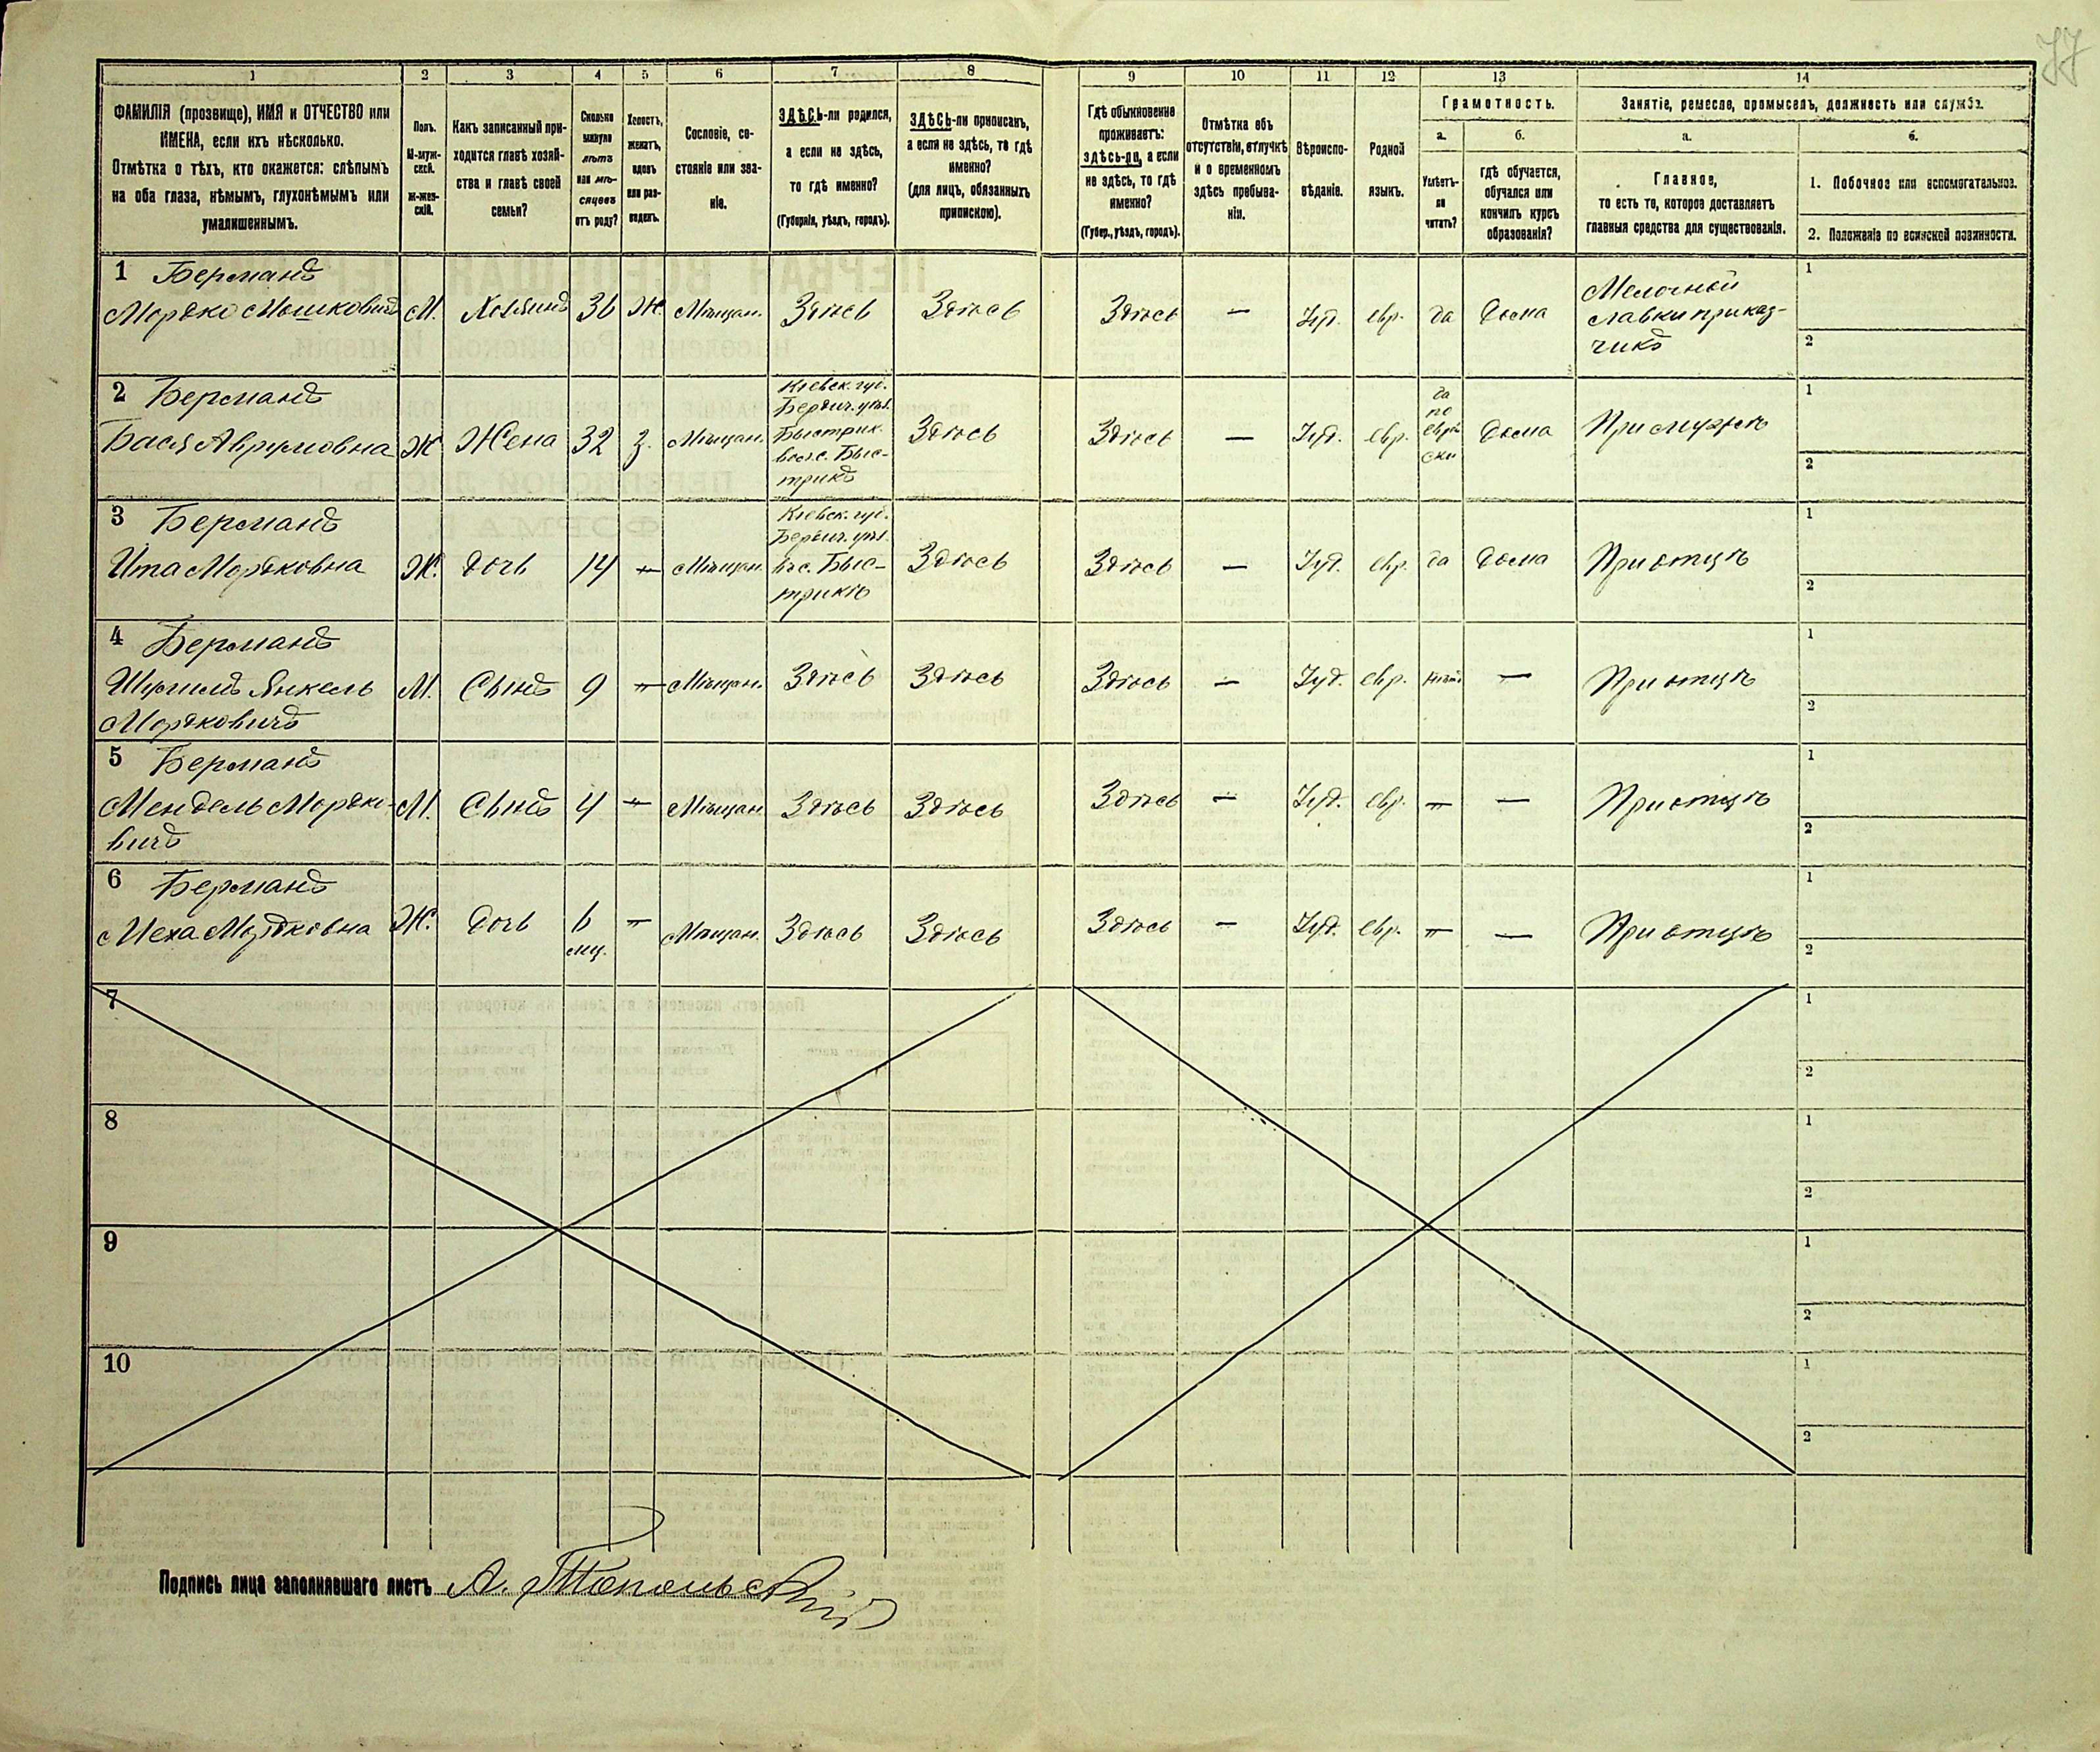 77
1 2 3 4 5 6 7 8 9 10 11 12 13 14
ФАМИЛІЯ (прозвище), ИМЯ и ОТЧЕСТВО или
ИМЕНА, если ихъ нѣсколько.
Отмѣтка о тѣхъ, кто окажется: слѣпымъ
на оба глаза, нѣмымъ, глухонѣмымъ или
умалишеннымъ.
Полъ.
М-муж-
ской.
Ж-жен-
скій.
Какъ записанный при-
ходится главѣ хозяй-
ства и главѣ своей
семьи?
Сколько
минуло
лѣтъ
или мѣ-
сяцевъ
отъ роду?
Холостъ,
женатъ,
вдовъ
или раз-
веденъ.
Сословіе, со-
стояніе или зва-
ніе.
ЗДѢСЬ-ли родился,
а если не здѣсь,
то гдѣ именно?
(Губернія, уѣздъ, городъ).
ЗДѢСЬ-ли приписанъ,
а если не здѣсь, то гдѣ
именно?
(для лицъ, обязанныхъ
припискою).
Гдѣ обыкновенно
проживаетъ:
здѣсь-ли, а если
не здѣсь, то гдѣ
именно?
(Губер., уѣздъ, городъ).
Отмѣтка объ
отсутствіи, отлучкѣ
и о временномъ
здѣсь пребыва-
ніи.
Вѣроиспо-
вѣданіе.
Родной
языкъ.
Грамотность.
а. б.
Умѣетъ-
ли
читать?
гдѣ обучается,
обучался или
кончилъ курсъ
образованія?
Занятіе, ремесло, промыселъ, должность или служба.
а. б.
Главное,
то есть то, которое доставляетъ
главныя средства для существованія.
1. Побочное или вспомогательное.
2. Положеніе по воинской повинности.
1 Берманъ
Мордко Мошковичъ М. Хозяинъ 36 Ж. Мѣщан. Здѣсь Здѣсь Здѣсь — Іуд. евр. да Дома
Мелочной
лавки приказ-
чикъ
1
2
2 Берманъ
Бася Аврумовна Ж Жена 32 З. Мѣщан.
Кіевск. губ.
Бердич. уѣз.
Быстрик.
вол. с. Быс-
трикъ
Здѣсь Здѣсь — Іуд. евр.
да
по
еврей
ски
Дома При мужѣ
1
2
3 Берманъ
Ита Мордковна Ж. дочь 14 — Мѣщан.
Кіевск. губ.
Бердич. уѣз.
въ с. Быс-
трикѣ
Здѣсь Здѣсь — Іуд. евр. да Дома При отцѣ
1
2
4 Берманъ
Шмилъ Янкель М. Сынъ 9 — Мѣщан. Здѣсь Здѣсь Здѣсь — Іуд. евр. нѣтъ — При отцѣ
Мордковичъ
1
2
5 Берманъ
Мендель Мордко- М. Сынъ 4 — Мѣщан. Здѣсь Здѣсь Здѣсь — Іуд. евр. — — При отцѣ
вичъ
1
2
6 Берманъ
Меха Мордковна Ж. Дочь 6 — Мѣщан. Здѣсь Здѣсь Здѣсь — Іуд. евр. — — При отцѣ
мѣс.
1
2
7
1
2
8
1
2
9
1
2
10
1
2
Подпись лица заполнявшаго листъ А. Топольскій